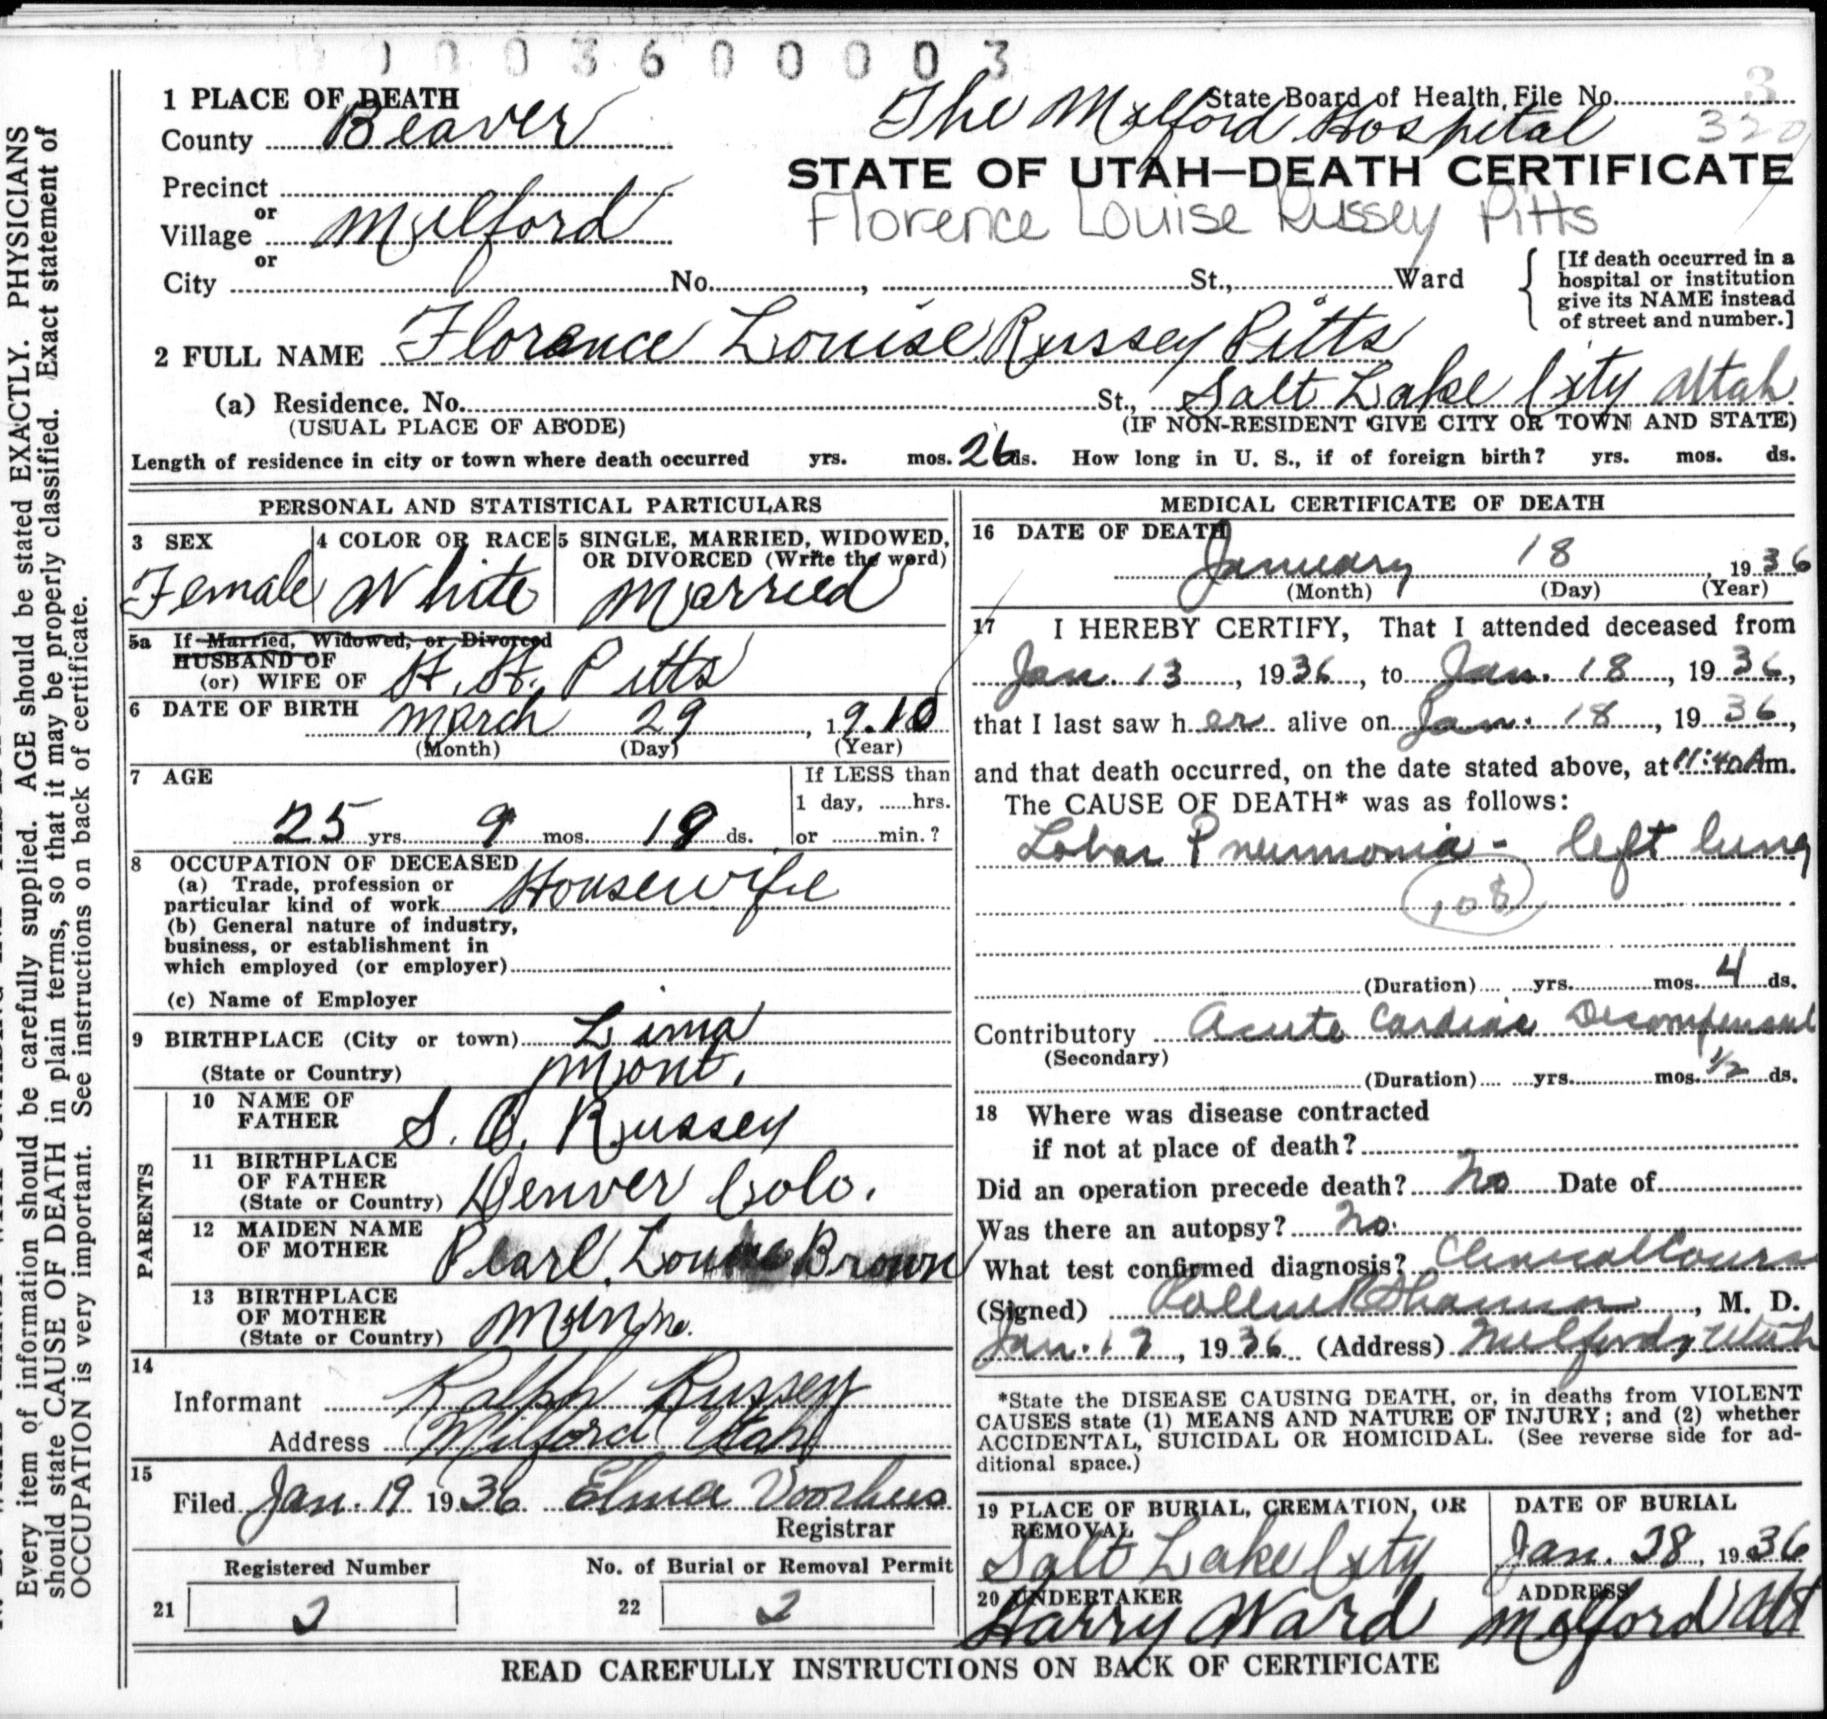 0 0 3 6 0 0 0 0 3
1 PLACE OF DEATH
County Beaver
The Milford Hospital
State Board of Health, File No. 3
320
STATE OF UTAH—DEATH CERTIFICATE
Florence Louise Russey Pitts
Precinct
or
Village Milford
or
City No. , St., Ward
[If death occurred in a
hospital or institution
give its NAME instead
of street and number.]
2 FULL NAME Florence Louise Russey Pitts
(a) Residence. No. St., Salt Lake City Utah
(USUAL PLACE OF ABODE) (IF NON-RESIDENT GIVE CITY OR TOWN AND STATE)
Length of residence in city or town where death occurred yrs. mos. 26 ds. How long in U. S., if of foreign birth? yrs. mos. ds.
PERSONAL AND STATISTICAL PARTICULARS
3 SEX
Female
4 COLOR OR RACE
White
5 SINGLE, MARRIED, WIDOWED,
OR DIVORCED (Write the word)
Married
5a If Married, Widowed, or Divorced
HUSBAND OF
(or) WIFE OF H. H. Pitts
6 DATE OF BIRTH March 29, 1910
(Month) (Day) (Year)
7 AGE
25 yrs. 9 mos. 19 ds.
If LESS than
1 day, ......hrs.
or ........min.?
8 OCCUPATION OF DECEASED
(a) Trade, profession or
particular kind of work Housewife
(b) General nature of industry,
business, or establishment in
which employed (or employer)
(c) Name of Employer
9 BIRTHPLACE (City or town) Lima
(State or Country) Mont.
PARENTS
10 NAME OF
FATHER S. O. Russey
11 BIRTHPLACE
OF FATHER
(State or Country) Denver Colo.
12 MAIDEN NAME
OF MOTHER Pearl Louise Brown
13 BIRTHPLACE
OF MOTHER
(State or Country) Minn.
14
Informant Ralph Russey
Address Milford Utah
15
Filed Jan. 19 1936 Elma Voorhees
Registrar
Registered Number
21 2
No. of Burial or Removal Permit
22 2
MEDICAL CERTIFICATE OF DEATH
16 DATE OF DEATH
January 18, 1936
(Month) (Day) (Year)
17 I HEREBY CERTIFY, That I attended deceased from
Jan. 13, 1936, to Jan. 18, 1936,
that I last saw her alive on Jan. 18, 1936,
and that death occurred, on the date stated above, at 11:40 Am.
The CAUSE OF DEATH* was as follows:
Lobar Pneumonia - left lung
108
(Duration) yrs. mos. 4 ds.
Contributory Acute Cardiac Decompensat
(Secondary)
(Duration) yrs. mos. 1/2 ds.
18 Where was disease contracted
if not at place of death?
Did an operation precede death? No Date of
Was there an autopsy? No.
What test confirmed diagnosis? Clinical Cours
(Signed) , M. D.
Jan. 1936 (Address) Milford, Utah
*State the DISEASE CAUSING DEATH, or, in deaths from VIOLENT
CAUSES state (1) MEANS AND NATURE OF INJURY; and (2) whether
ACCIDENTAL, SUICIDAL OR HOMICIDAL. (See reverse side for ad-
ditional space.)
19 PLACE OF BURIAL, CREMATION, OR
REMOVAL
Salt Lake City
DATE OF BURIAL
Jan. 1936
20 UNDERTAKER
Harry Ward
ADDRESS
Milford Ut
READ CAREFULLY INSTRUCTIONS ON BACK OF CERTIFICATE
Every item of information should be carefully supplied. AGE should be stated EXACTLY. PHYSICIANS
should state CAUSE OF DEATH in plain terms, so that it may be properly classified. Exact statement of
OCCUPATION is very important. See instructions on back of certificate.